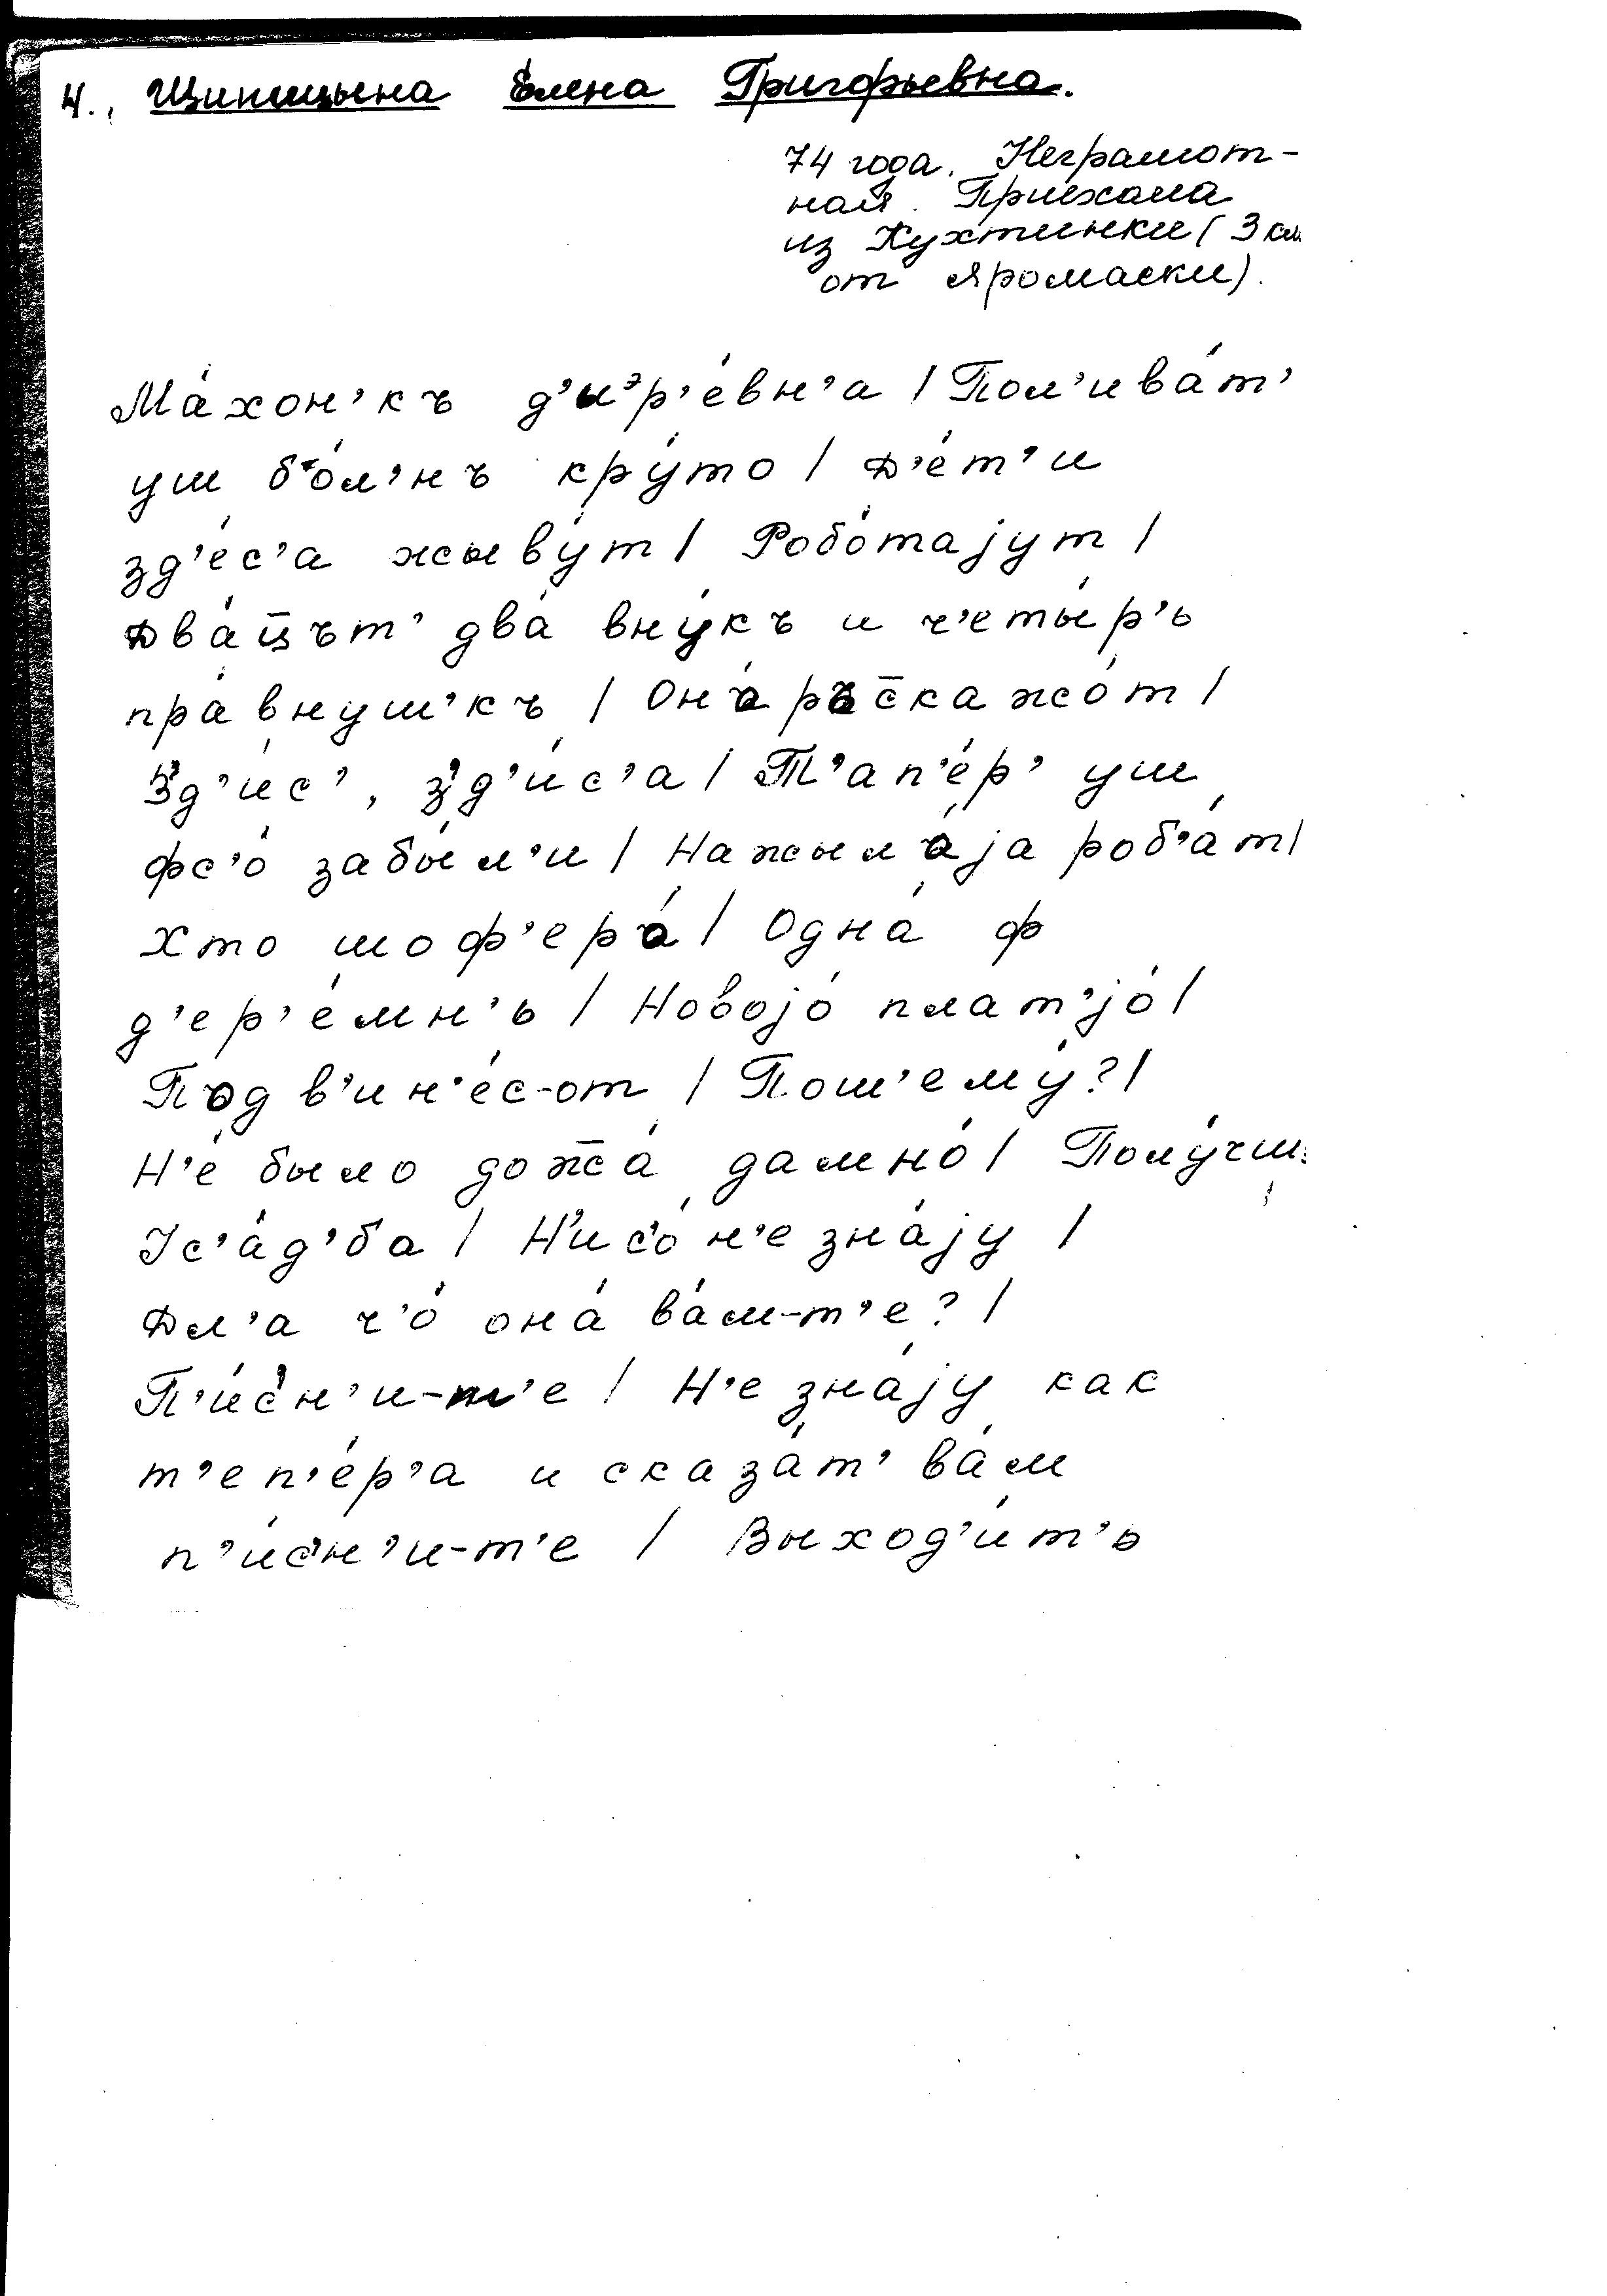 4. Щипицына Елена Григорьевна.
74 года. Неграмот-
ная. Приехала
из Кухтинки (3 км
от Яромаски).
Ма́хон'къ д'иэр'е́вн'а | Пол'ива́т'
уш бо́л'нъ кру́то | Д'е́т'и
зд'е́с'а жыву́т | Робо́тајут |
Два́ц̅ът' два́ вну́къ и ч'еты́р'ь
пра́внуш'къ | Она́ ръс̅кажо́т |
З'д'и́с', з'д'и́с'а | Т'ап'е́р' уш
фс'о́ забы́л'и | Нажыла́ја роб'а́т |
Хто шоф'ера́ | Одна́ ф
д'ер'е́мн'ь | Новојо́ плат'јо́ |
Под в'ин'е́с-от | Пош'ему́? |
Н'е́ было дож̅а́ дамно́ | Полу́чш
Ус'а́д'ба | Н'ис'о́ н'е зна́ју |
Дл'а ч'о́ она́ ва́м-т'е? |
П'и́с'н'и-т'е | Н'е зна́ју как
т'еп'е́р'а и сказа́т' ва́м
п'и́с'н'и-т'е | Выход'и́т'ь